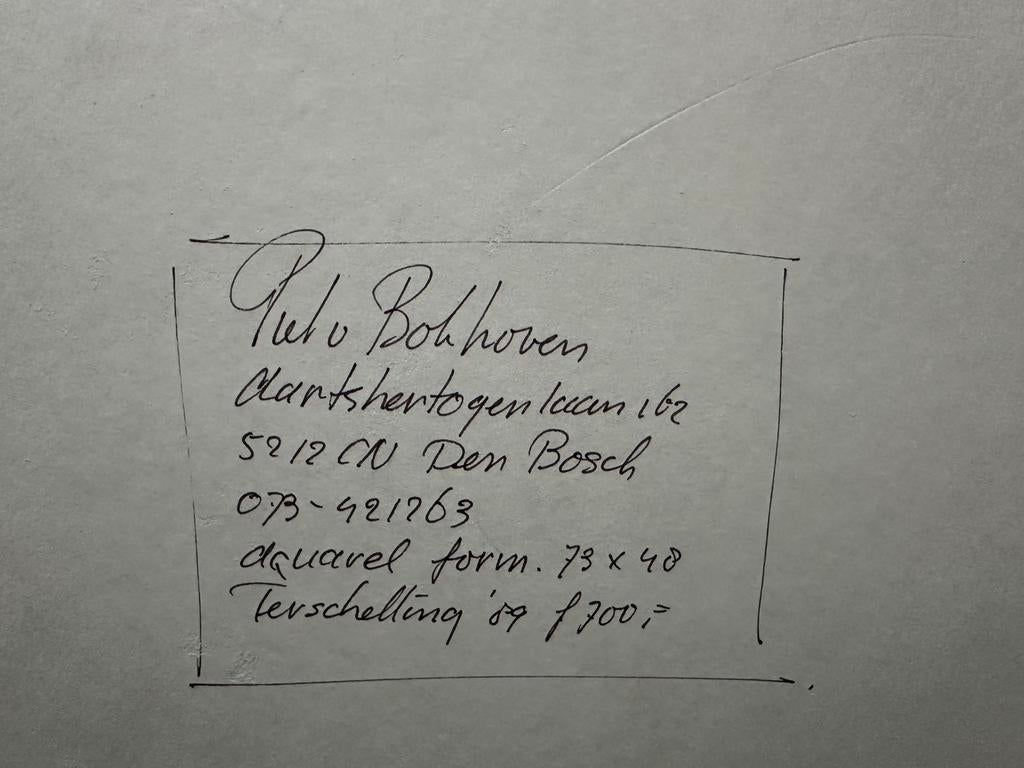 Piet v Bokhoven
Aartshertogenlaan 162
5212 CN Den Bosch
073-421763
aquarel form. 73 x 48
Terschelling '89 f 700,=